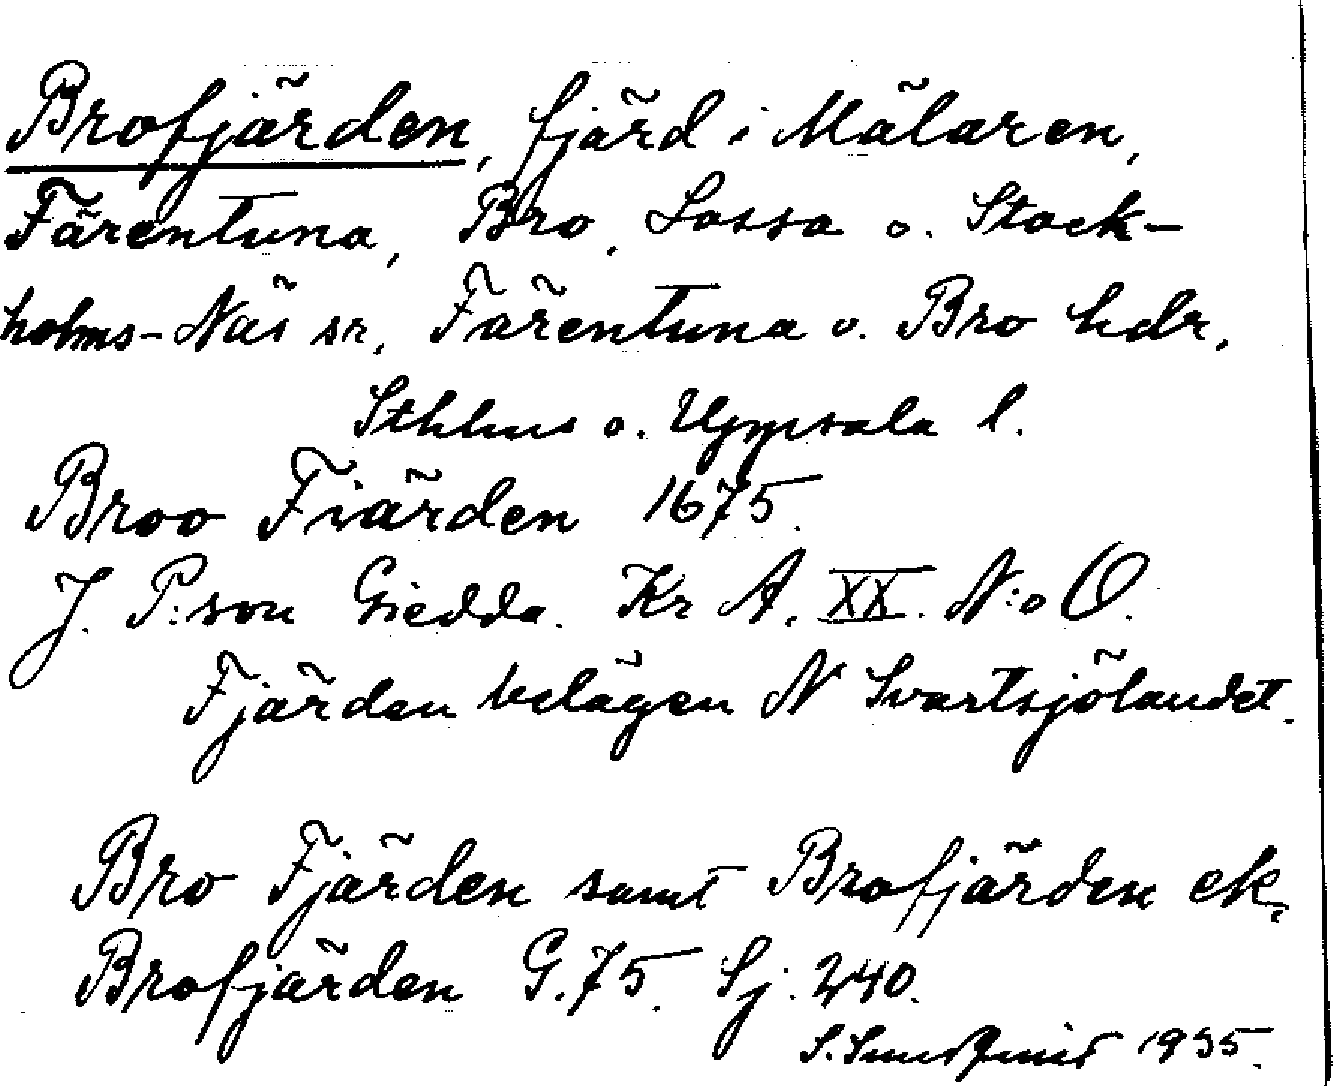 Brofjärden, fjärd i Mälaren,
Färentuna, Bro, Lossa o. Stock-
holms-Näs sr, Färentuna o. Bro hdr,
Sthlms o. Uppsala l.
Broo Fiärden 1675.
J. P:son Giedda. Kr A. XX. N:o O.
Fjärden belägen N Svartsjölandet.
Bro Fjärden samt Brofjärden ek.
Brofjärden G. 75. Sj. 240.
S. 1935.